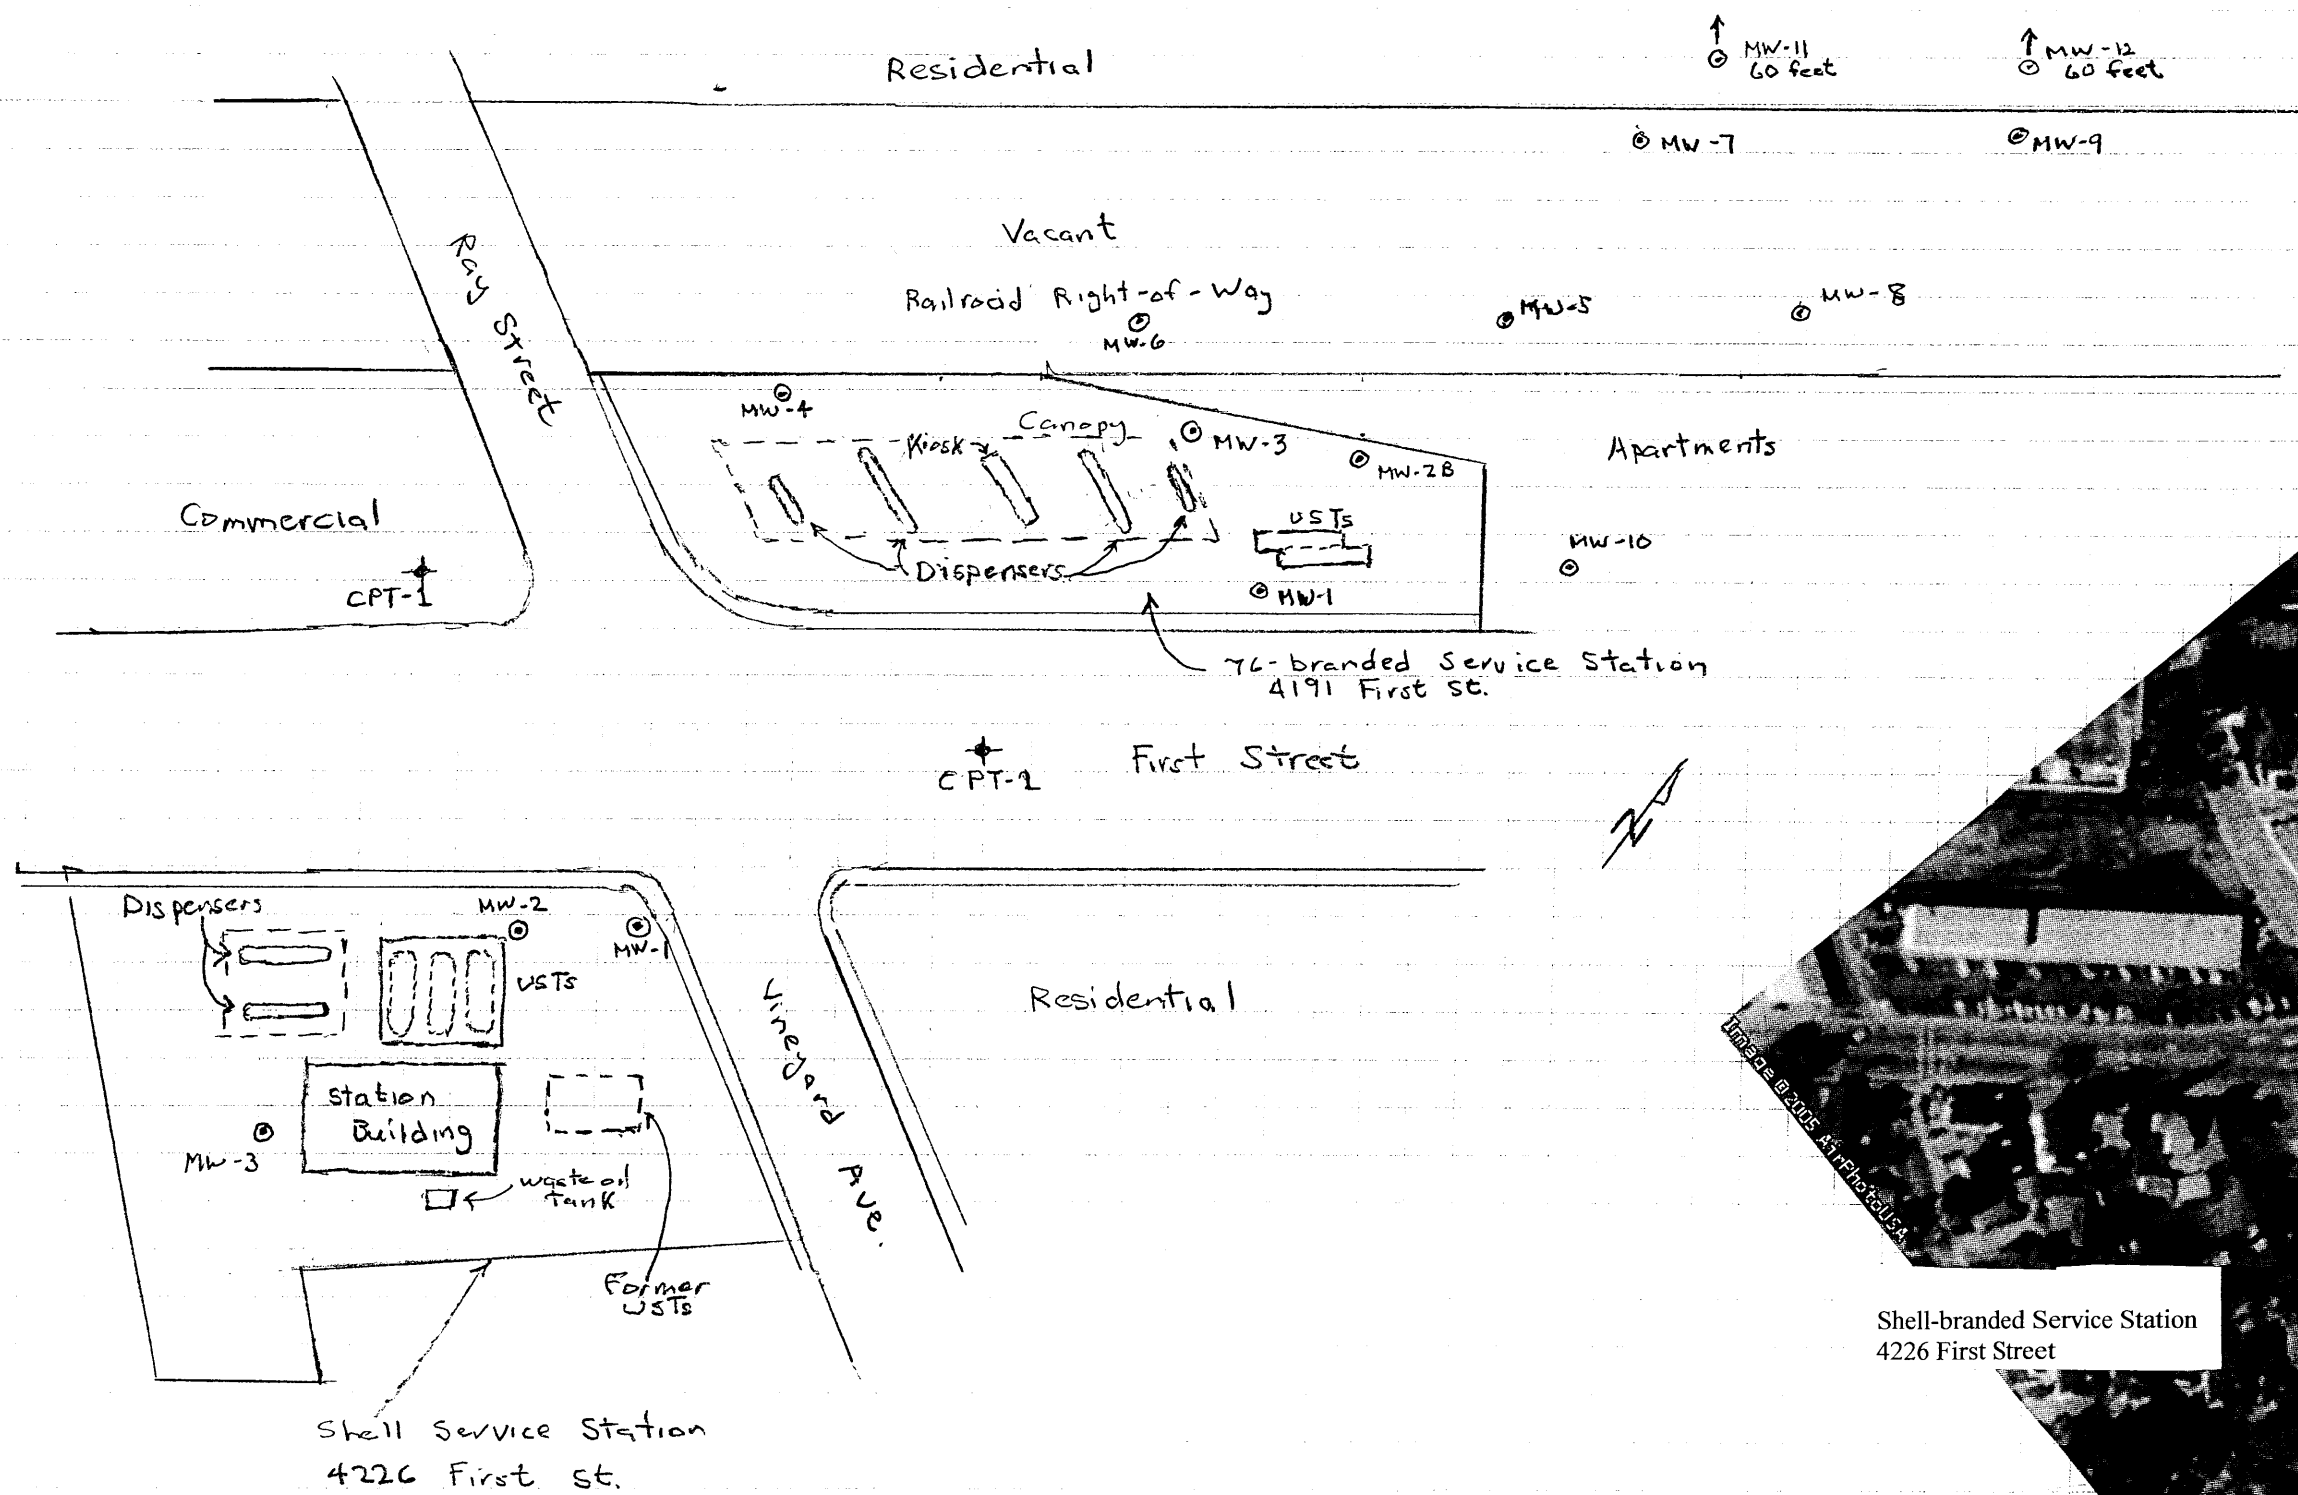 Residential
MW-11
60 feet
MW-12
60 feet
MW-7
MW-9
Vacant
Railroad Right-of-Way
MW-6
MW-5
MW-8
Ray Street
MW-4
Canopy
Kiosk
MW-3
MW-2B
Apartments
Commercial
USTs
MW-10
CPT-1
Dispensers
MW-1
76-branded Service Station
4191 First St.
First Street
CPT-2
N
Dispensers
MW-2
MW-1
USTs
Residential
Vineyard Ave.
Station
Building
MW-3
waste oil
tank
Former
USTs
Shell Service Station
4226 First St.
Image ©2005 AirPhotoUSA
Shell-branded Service Station
4226 First Street